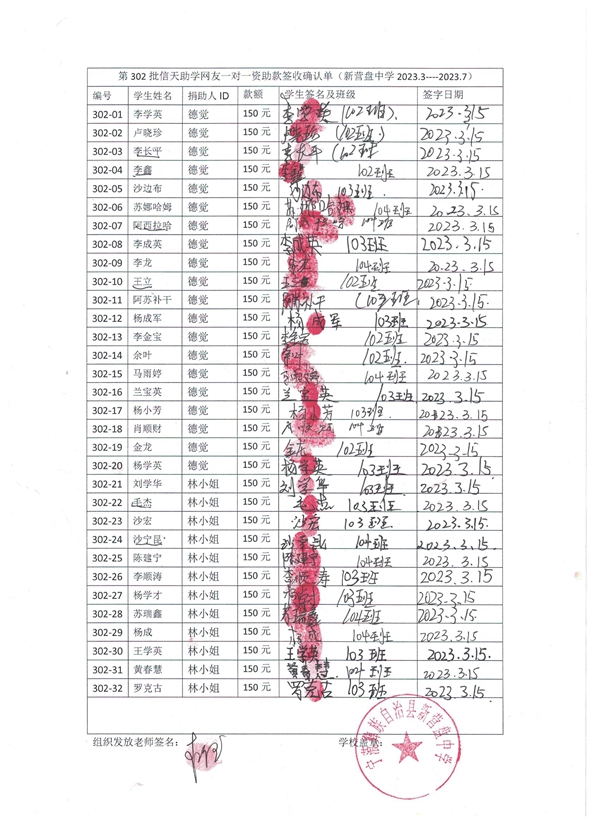 第 302 批信天助学网友一对一资助款签收确认单（新营盘中学 2023.3----2023.7）
编号 学生姓名 捐助人 ID 款额 学生签名及班级 签字日期
302-01 李学英 德觉 150 元 李学英 (102班). 2023.3.15
302-02 卢晓珍 德觉 150 元 (102班) 2023.3.15
302-03 李长平 德觉 150 元 李长平 (102班 2023.3.15
302-04 李鑫 德觉 150 元 李鑫 102班 2023.3.15
302-05 沙边布 德觉 150 元 103班 2023.3.15
302-06 苏娜哈姆 德觉 150 元 104班 2023.3.15
302-07 阿西拉哈 德觉 150 元 104班 2023.3.15
302-08 李成英 德觉 150 元 李成英 103班 2023.3.15
302-09 李龙 德觉 150 元 李龙 104班 2023.3.15
302-10 王立 德觉 150 元 王立 102班 2023.3.15
302-11 阿苏补干 德觉 150 元 补干 (103班 2023.3.15
302-12 杨成军 德觉 150 元 杨成军 103班 2023.3.15
302-13 李金宝 德觉 150 元 102班 2023.3.15
302-14 余叶 德觉 150 元 余叶 102班 2023.3.15
302-15 马雨婷 德觉 150 元 104班 2023.3.15
302-16 兰宝英 德觉 150 元 兰宝英 103班 2023.3.15
302-17 杨小芳 德觉 150 元 杨小芳 103班 2023.3.15
302-18 肖顺财 德觉 150 元 104班 2023.3.15
302-19 金龙 德觉 150 元 金龙 102班 2023.3.15
302-20 杨学英 德觉 150 元 杨学英 103班 2023.3.15
302-21 刘学华 林小姐 150 元 刘学华 103班 2023.3.15
302-22 毛杰 林小姐 150 元 毛杰 103班 2023.3.15
302-23 沙宏 林小姐 150 元 沙宏 103班 2023.3.15
302-24 沙宁昆 林小姐 150 元 沙宁昆 104班 2023.3.15
302-25 陈建宁 林小姐 150 元 陈建宁 104班 2023.3.15
302-26 李顺涛 林小姐 150 元 李顺涛 103班 2023.3.15
302-27 杨学才 林小姐 150 元 103班 2023.3.15
302-28 苏瑞鑫 林小姐 150 元 104班 2023.3.15
302-29 杨成 林小姐 150 元 杨成 104班 2023.3.15
302-30 王学英 林小姐 150 元 王学英 103班 2023.3.15.
302-31 黄春慧 林小姐 150 元 黄春慧 104班 2023.3.15
302-32 罗克古 林小姐 150 元 罗克古 103班 2023.3.15
组织发放老师签名： 学校盖章：
宁蒗彝族自治县新营盘中学